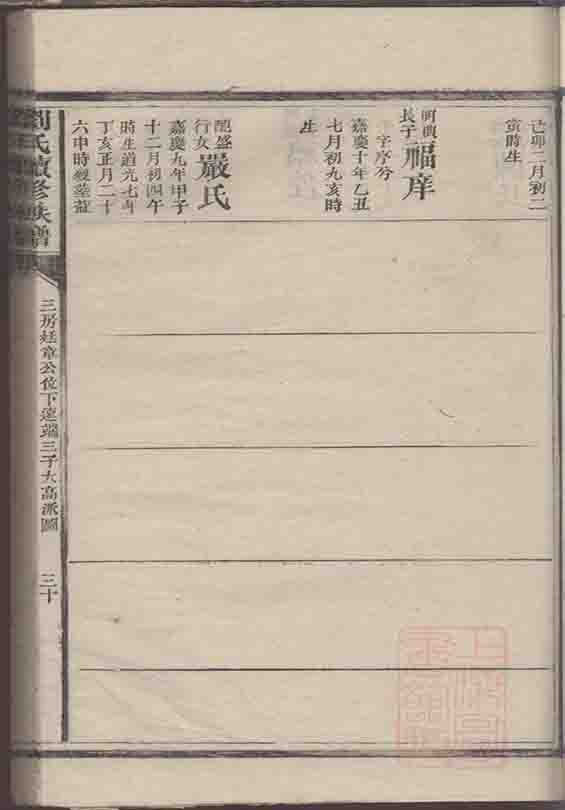 己卯二月初二
寅時生
長子福庠
字序
嘉慶十年乙丑
七月初九亥時
生
嚴氏
行女
嘉慶九年甲子
十二月初四午
時生道光七年
丁亥正月二十
六申時
劉氏續修族譜
三房廷章公位下達端三子大高派圖
三十